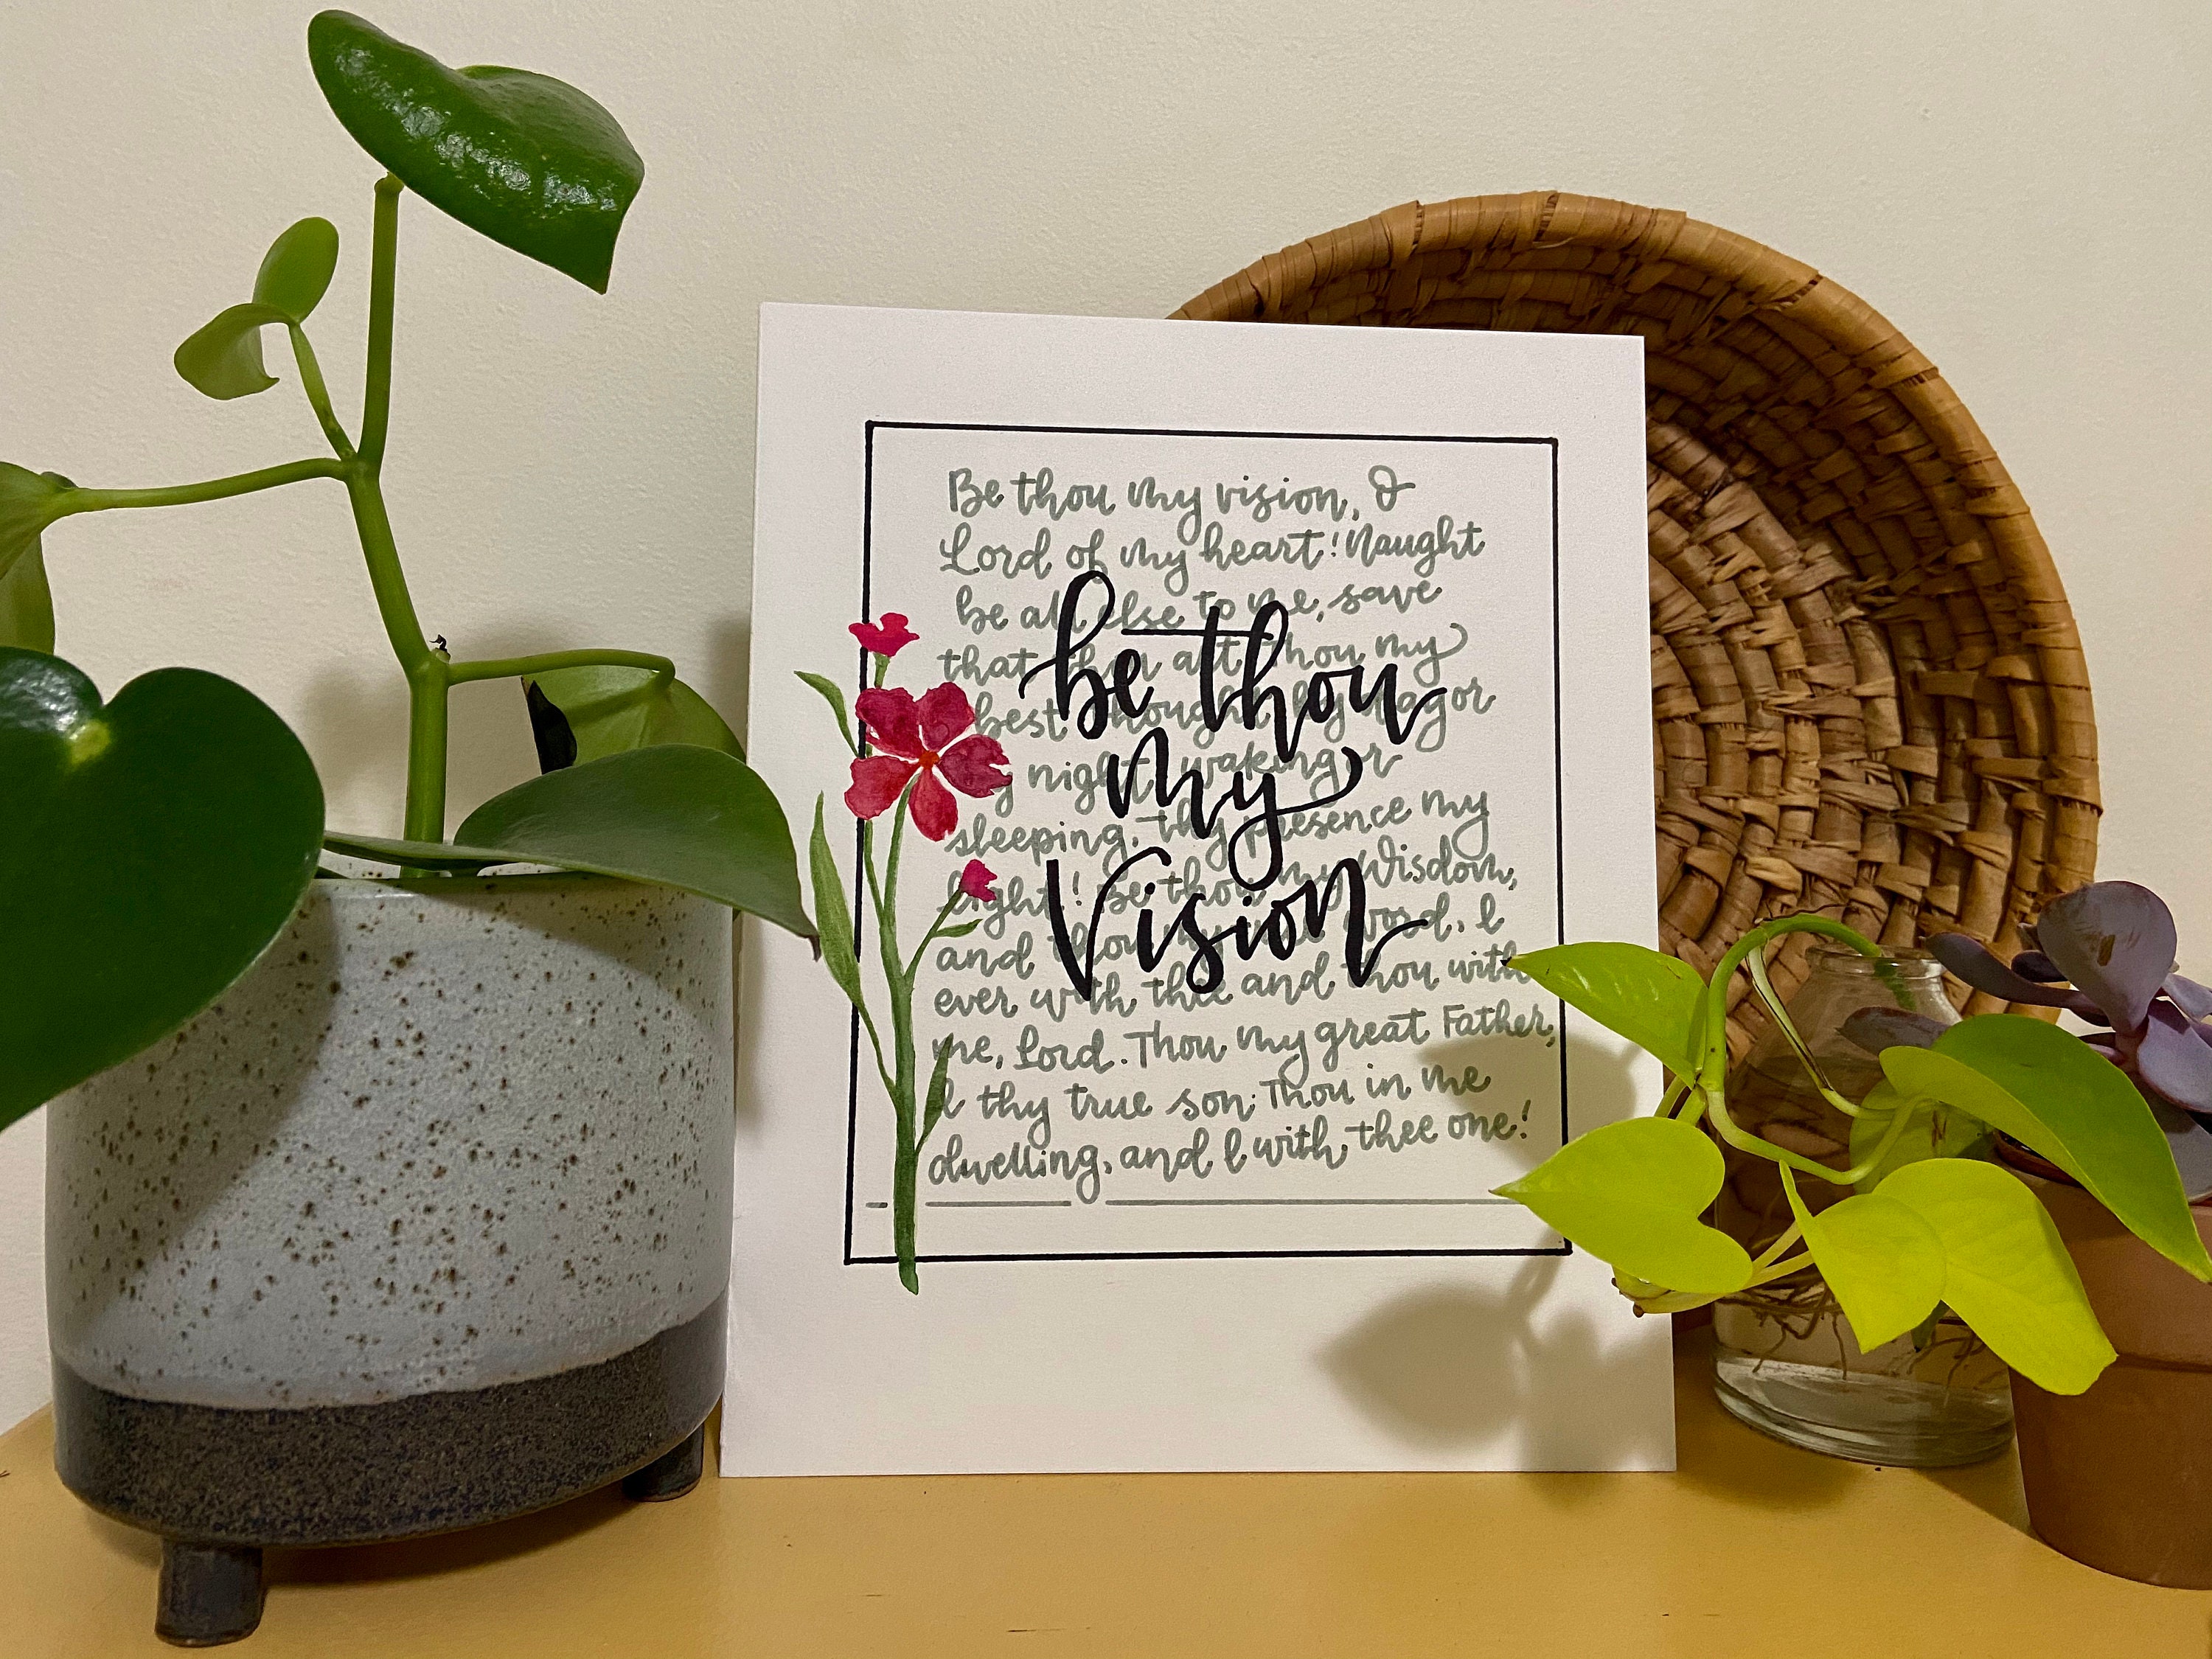 Be thou my vision, O
Lord of my heart! Naught
be all else to me, save
that thou art Thou my
best thought, by day or
by night, waking or
sleeping, thy presence my
light! Be thou my Wisdom,
and thou my true Word, I
ever with thee and thou with
me, Lord. Thou my great Father,
I thy true son. Thou in me
dwelling, and I with thee one!
be thou
my
Vision